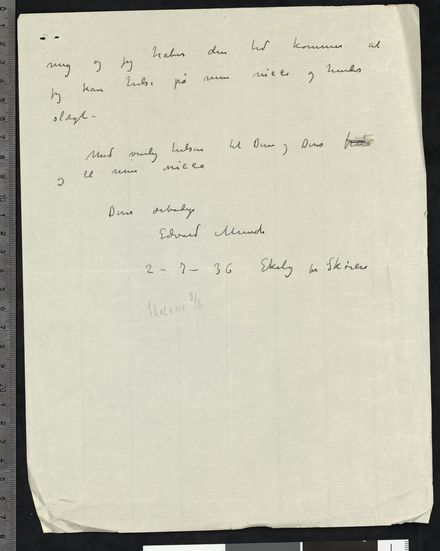 mig og jeg haber den tid kommer at
jeg kan hilse på min niece og hendes
slægt.
Med venlig hilsen til Dem og Deres
og til min niece
Deres ærbødige
Edvard Munch
2 – 7 – 36 Ekely pr Skøien